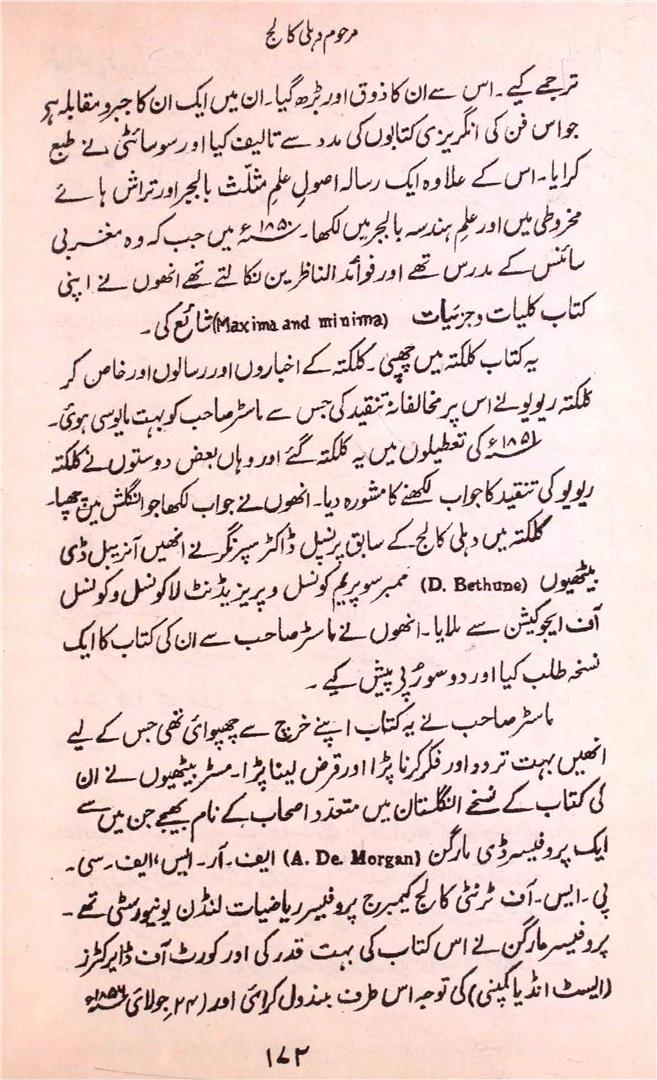 مرحوم دہلی کالج
ترجمے کیے۔ اس سے ان کا ذوق اور بڑھ گیا۔ ان میں ایک ان کا جبر و مقابلہ ہر
جو اس فن کی انگریزی کتابوں کی مدد سے تالیف کیا اور سوسائٹی نے طبع
کرایا۔ اس کے علاوہ ایک رسالہ اصولِ علمِ مثلّث بالجبر اور تراش ہائے
مخروطی میں اور علمِ ہندسہ بالجبر میں لکھا۔ ۱۸۵۰ء میں جب کہ وہ مغربی
سائنس کے مدرس تھے اور فوائد الناظرین نکالتے تھے انھوں نے اپنی
کتاب کلیات و جزئیات (Maxima and minima) شائع کی۔
یہ کتاب کلکتہ میں چھپی۔ کلکتہ کے اخباروں اور رسالوں اور خاص کر
کلکتہ ریویو نے اس پر مخالفانہ تنقید کی جس سے ماسٹر صاحب کو بہت مایوسی ہوئی۔
۱۸۵۱ء کی تعطیلوں میں یہ کلکتہ گئے اور وہاں بعض دوستوں نے کلکتہ
ریویو کی تنقید کا جواب لکھنے کا مشورہ دیا۔ انھوں نے جواب لکھا جو انگلش مین چھپا۔
کلکتہ میں دہلی کالج کے سابق پرنسپل ڈاکٹر سپرنگر نے انھیں آنریبل ڈی
بیٹھیوں (D. Bethune) ممبر سوپریم کونسل و پریزیڈنٹ لا کونسل و کونسل
آف ایجوکیشن سے ملایا۔ انھوں نے ماسٹر صاحب سے ان کی کتاب کا ایک
نسخہ طلب کیا اور دو سو رُپی پیش کیے۔
ماسٹر صاحب نے یہ کتاب اپنے خرچ سے چھپوائی تھی جس کے لیے
انھیں بہت تردد اور فکر کرنا پڑا اور قرض لینا پڑا۔ مسٹر بیٹھیوں نے ان
کی کتاب کے نسخے انگلستان میں متعدّد اصحاب کے نام بھیجے جن میں سے
ایک پروفیسر ڈی مارگن (A. De. Morgan) ایف۔آر۔ایس، ایف۔سی۔
پی۔ایس۔ آف ٹرنٹی کالج کیمبرج پروفیسر ریاضیات لنڈن یونیورسٹی تھے۔
پروفیسر مارگن نے اس کتاب کی بہت قدر کی اور کورٹ آف ڈایرکٹرز
(ایسٹ انڈیا کمپنی) کی توجہ اس طرف مبذول کرائی اور (۲۴؍جولائی
۱۷۲